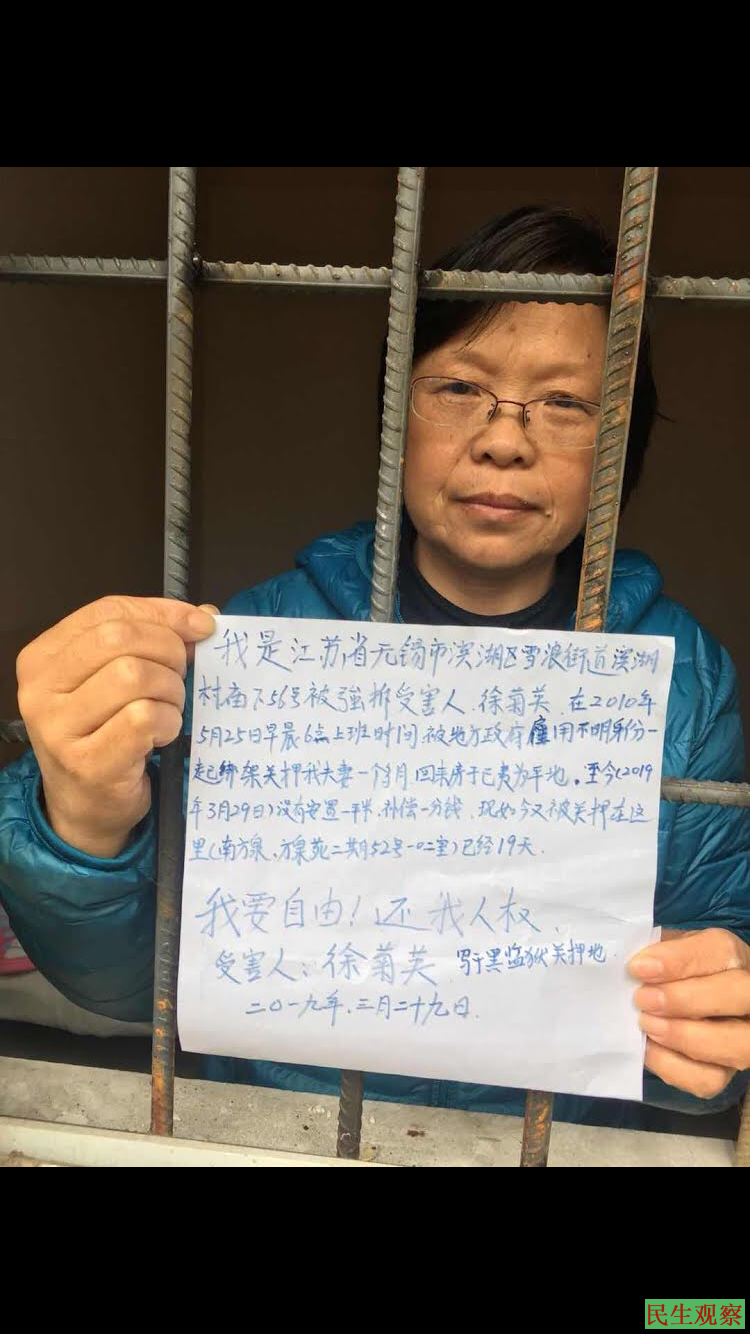 我是江苏省无锡市滨湖区雪浪街道溪湖
村庙下56号被強拆受害人.徐菊英.在2010年
5月25日早晨6点上班时间.被地方政府雇用不明身份一
起绑架关押我夫妻一个月.回来房子已夷为平地。至今(2019
年3月29日)没有安置一平米.补偿一分钱.现如今又被关押在这
里(南方泉.方泉苑二期52号一0二室)已经19天.
我要自由!还我人权.
受害人:徐菊英.写于黑监狱关押地.
二0一九年.三月二十九日.
民生观察